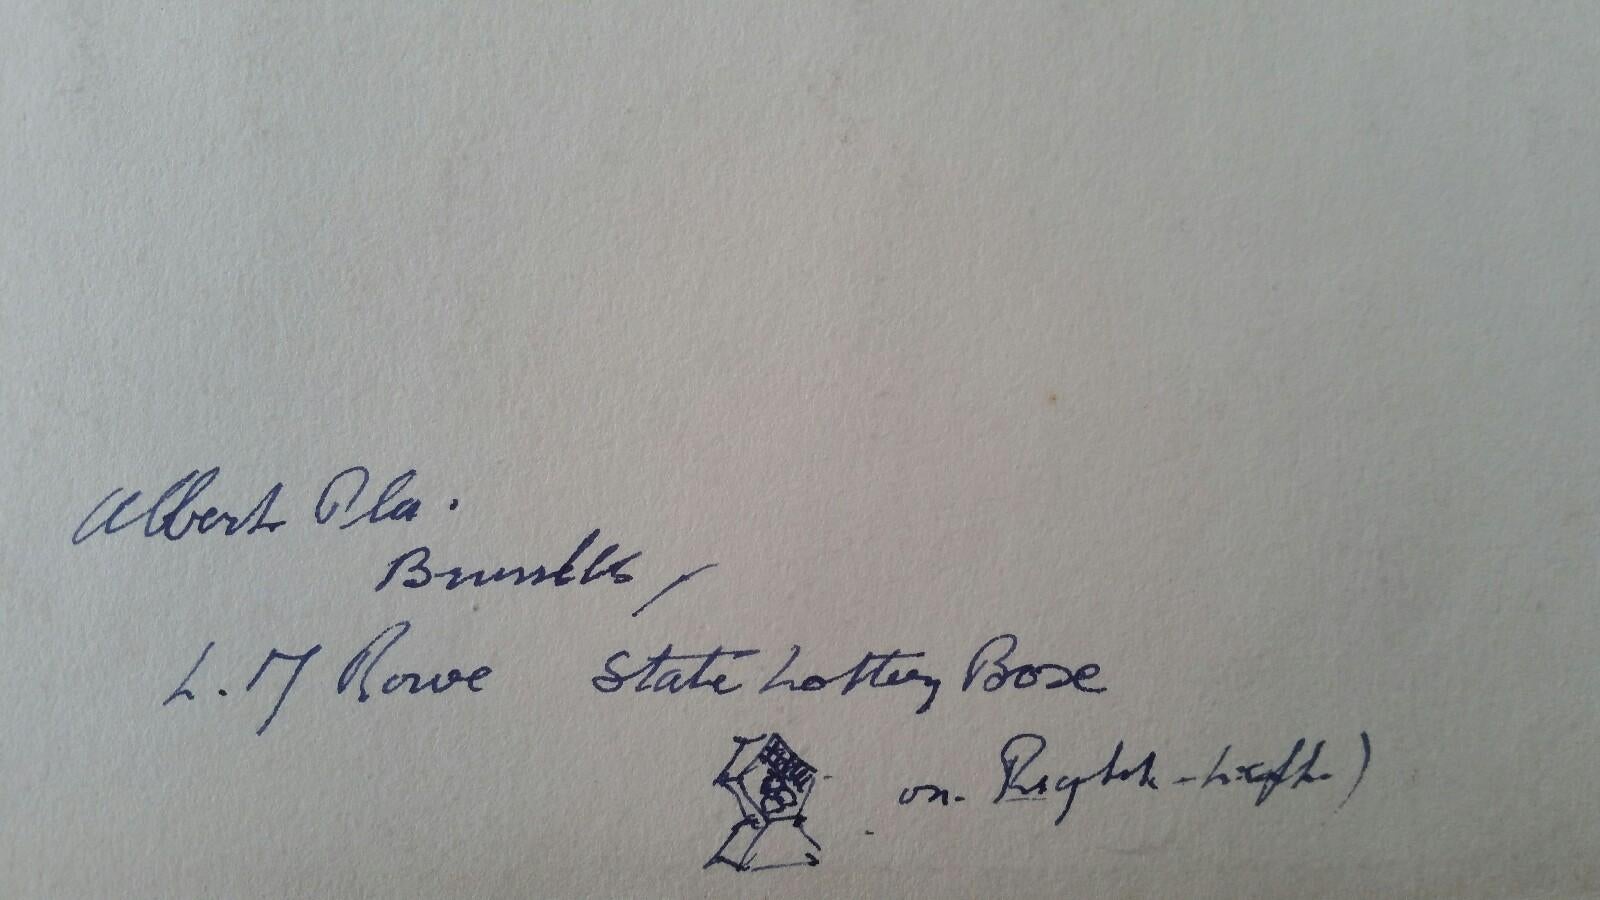 Albert Pla.
Brussels,
L. M Rowe State Lottery Boxe
on Right - Left)